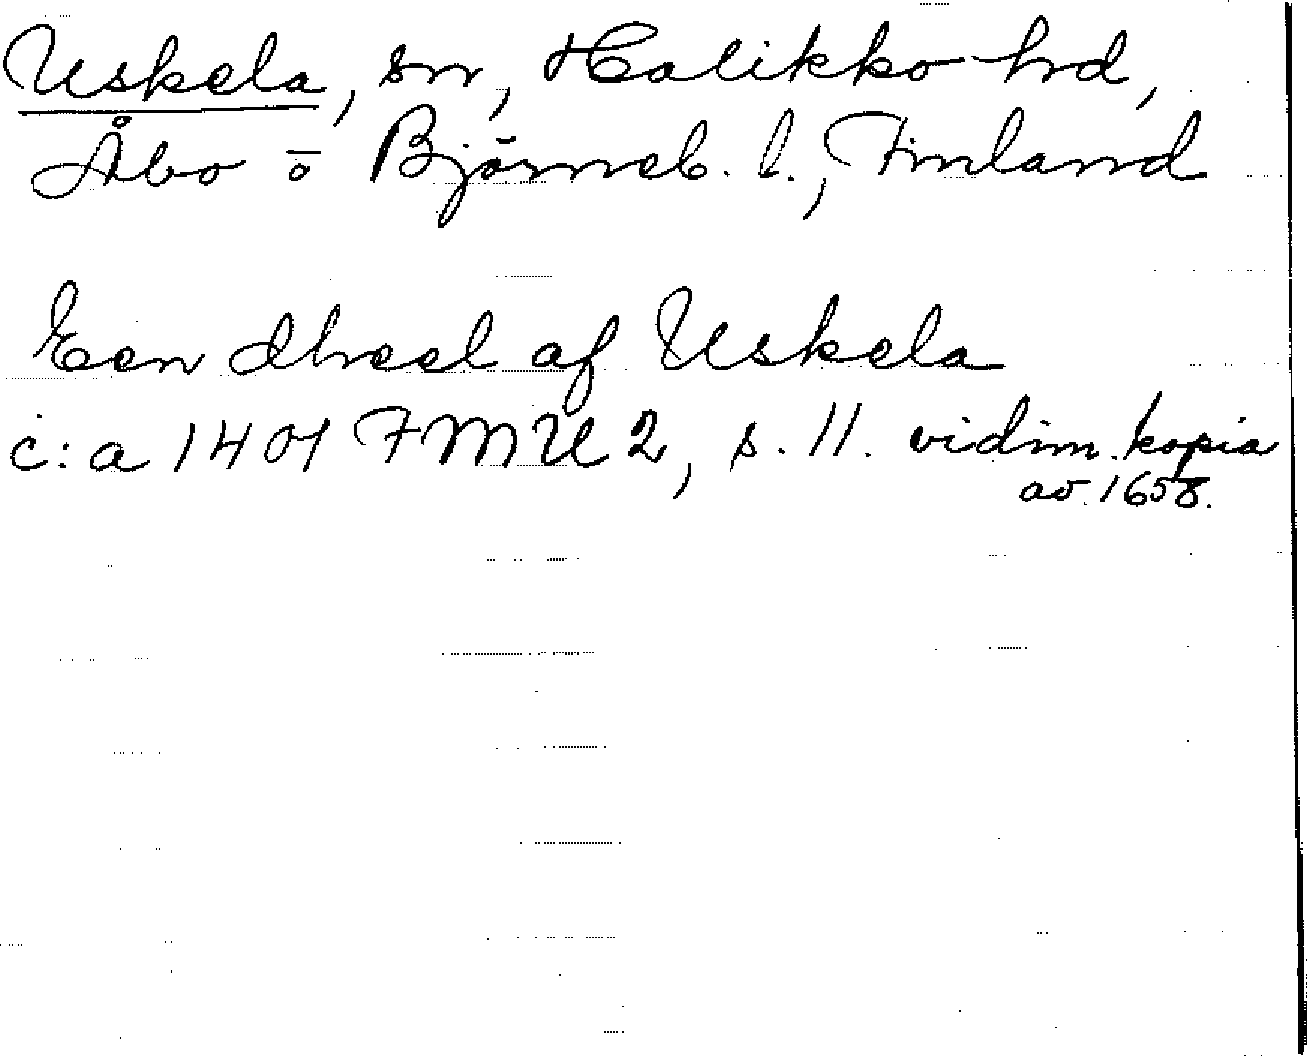 Uskela, sn, Halikko hd,
Åbo o Björneb. l., Finland
Een dheel af Uskela
c:a 1401 FMU 2, s. 11. vidim. kopia
av 1658.